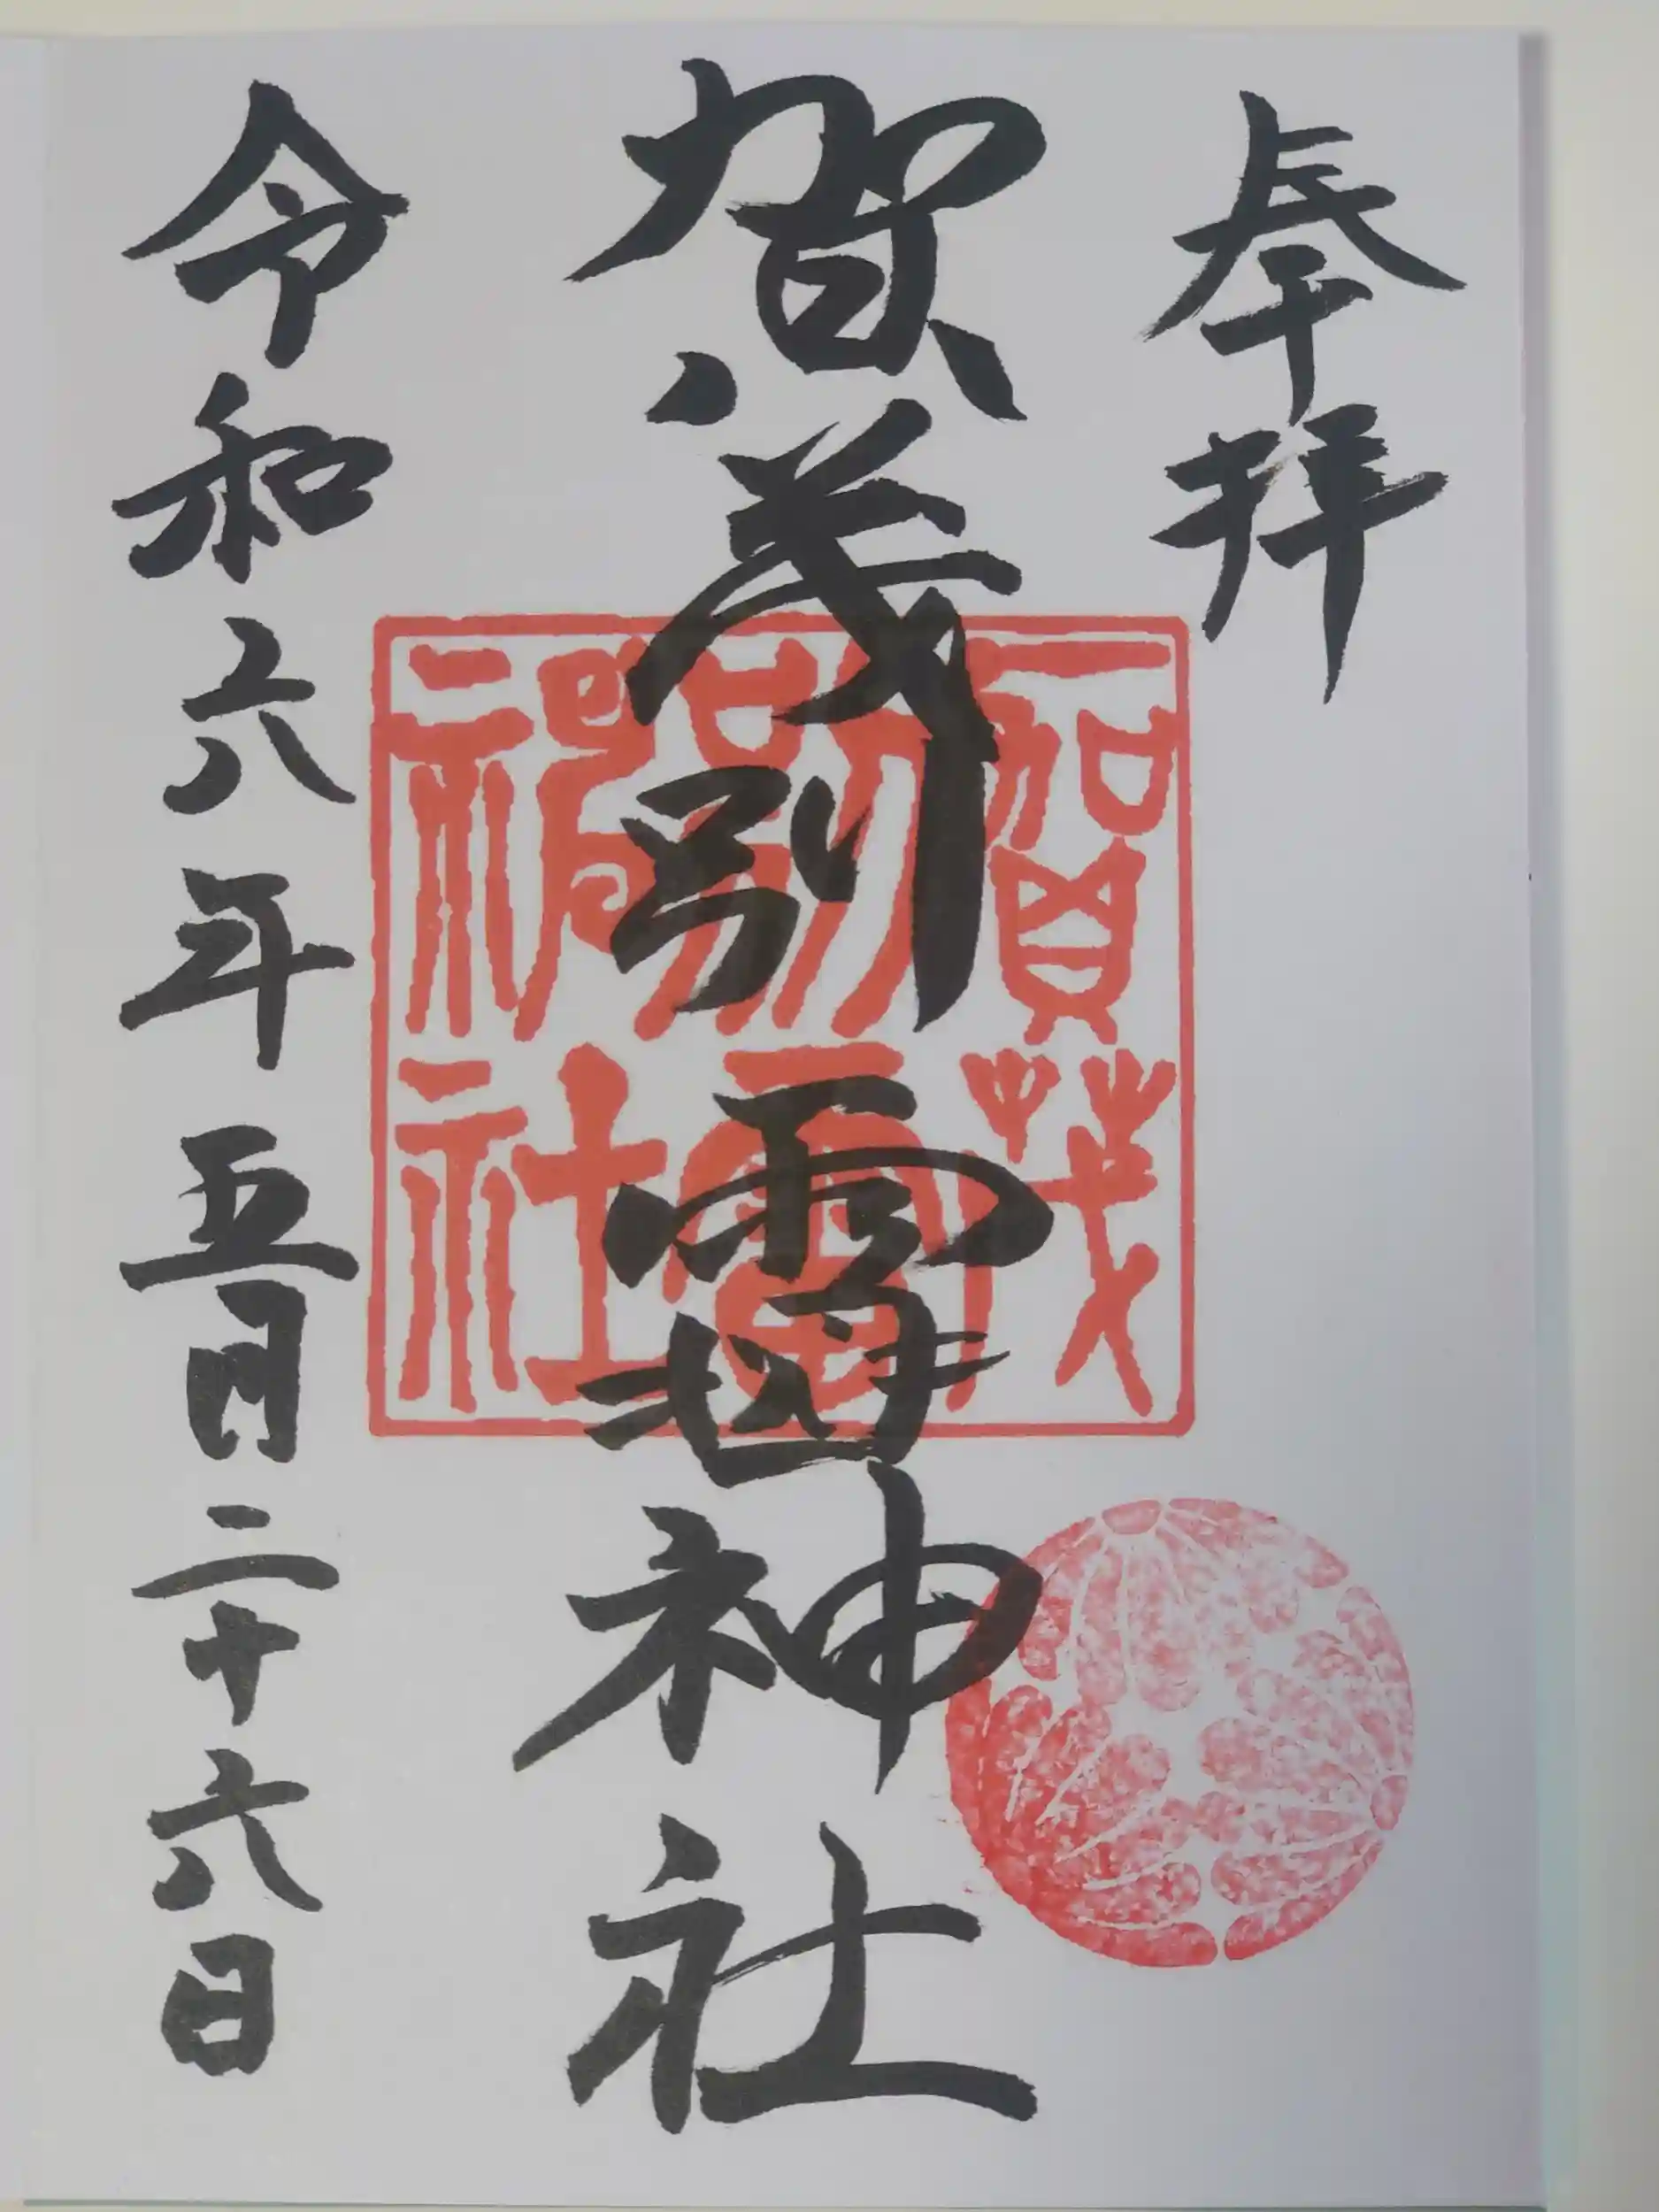 奉拝
賀茂別雷神社
賀茂
別雷
神社
令和六年五月二十六日